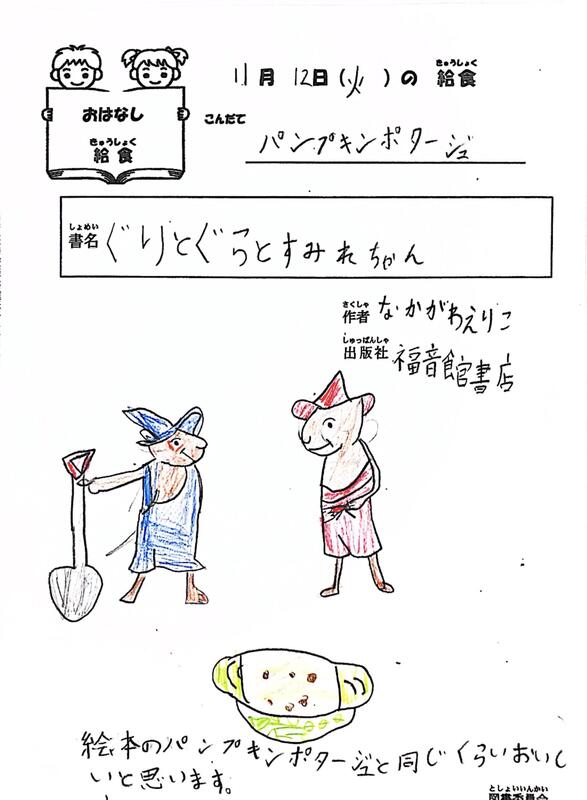 11月12日(火)の給食
きゅうしょく
おはなし
きゅうしょく
給食
こんだて
パンプキンポタージュ
しょめい
書名
ぐりとぐらとすみれちゃん
さくしゃ
作者 なかがわえりこ
しゅっぱんしゃ
出版社 福音館書店
絵本のパンプキンポタージュと同じくらいおいし
いと思います。
としょいいんかい
図書委員会